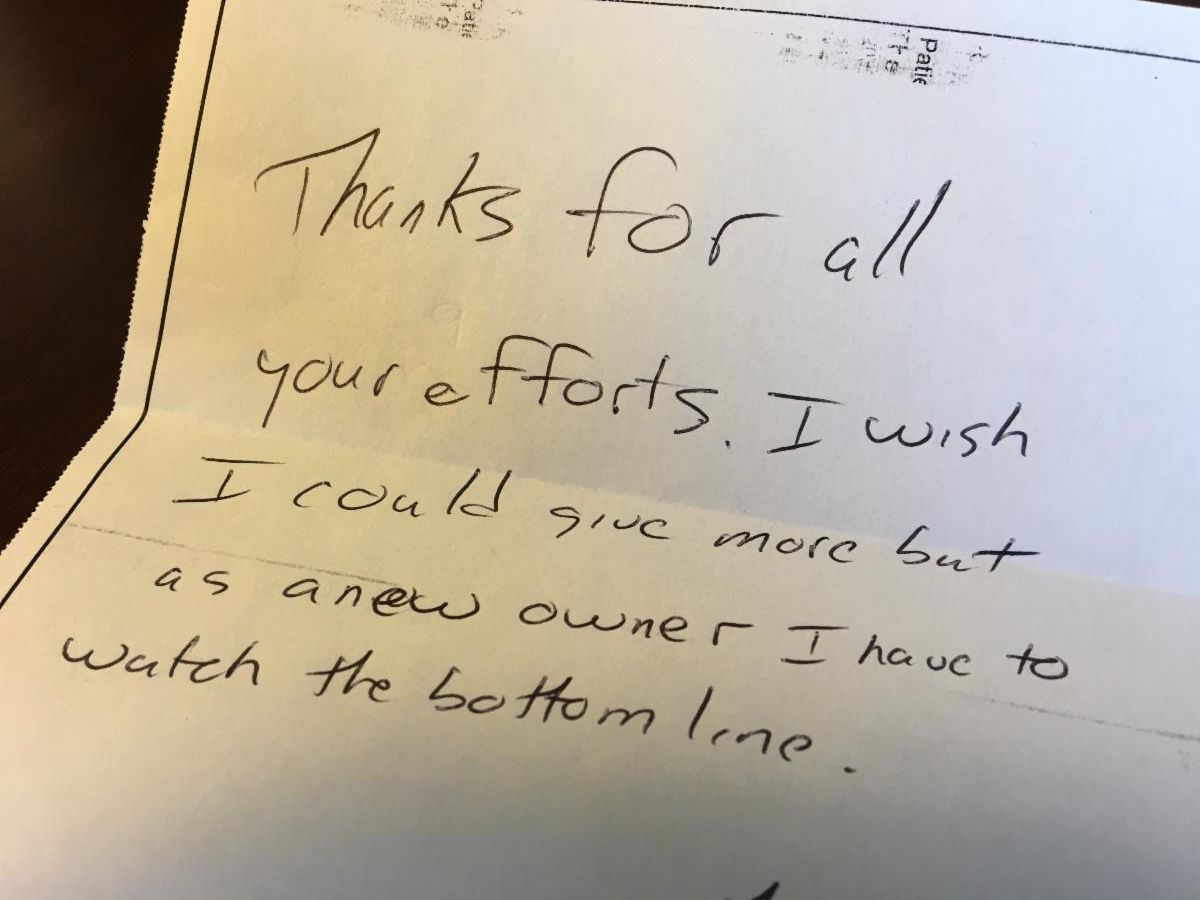 Patie
Thanks for all
your efforts. I wish
I could give more but
as a new owner I have to
watch the bottom line.